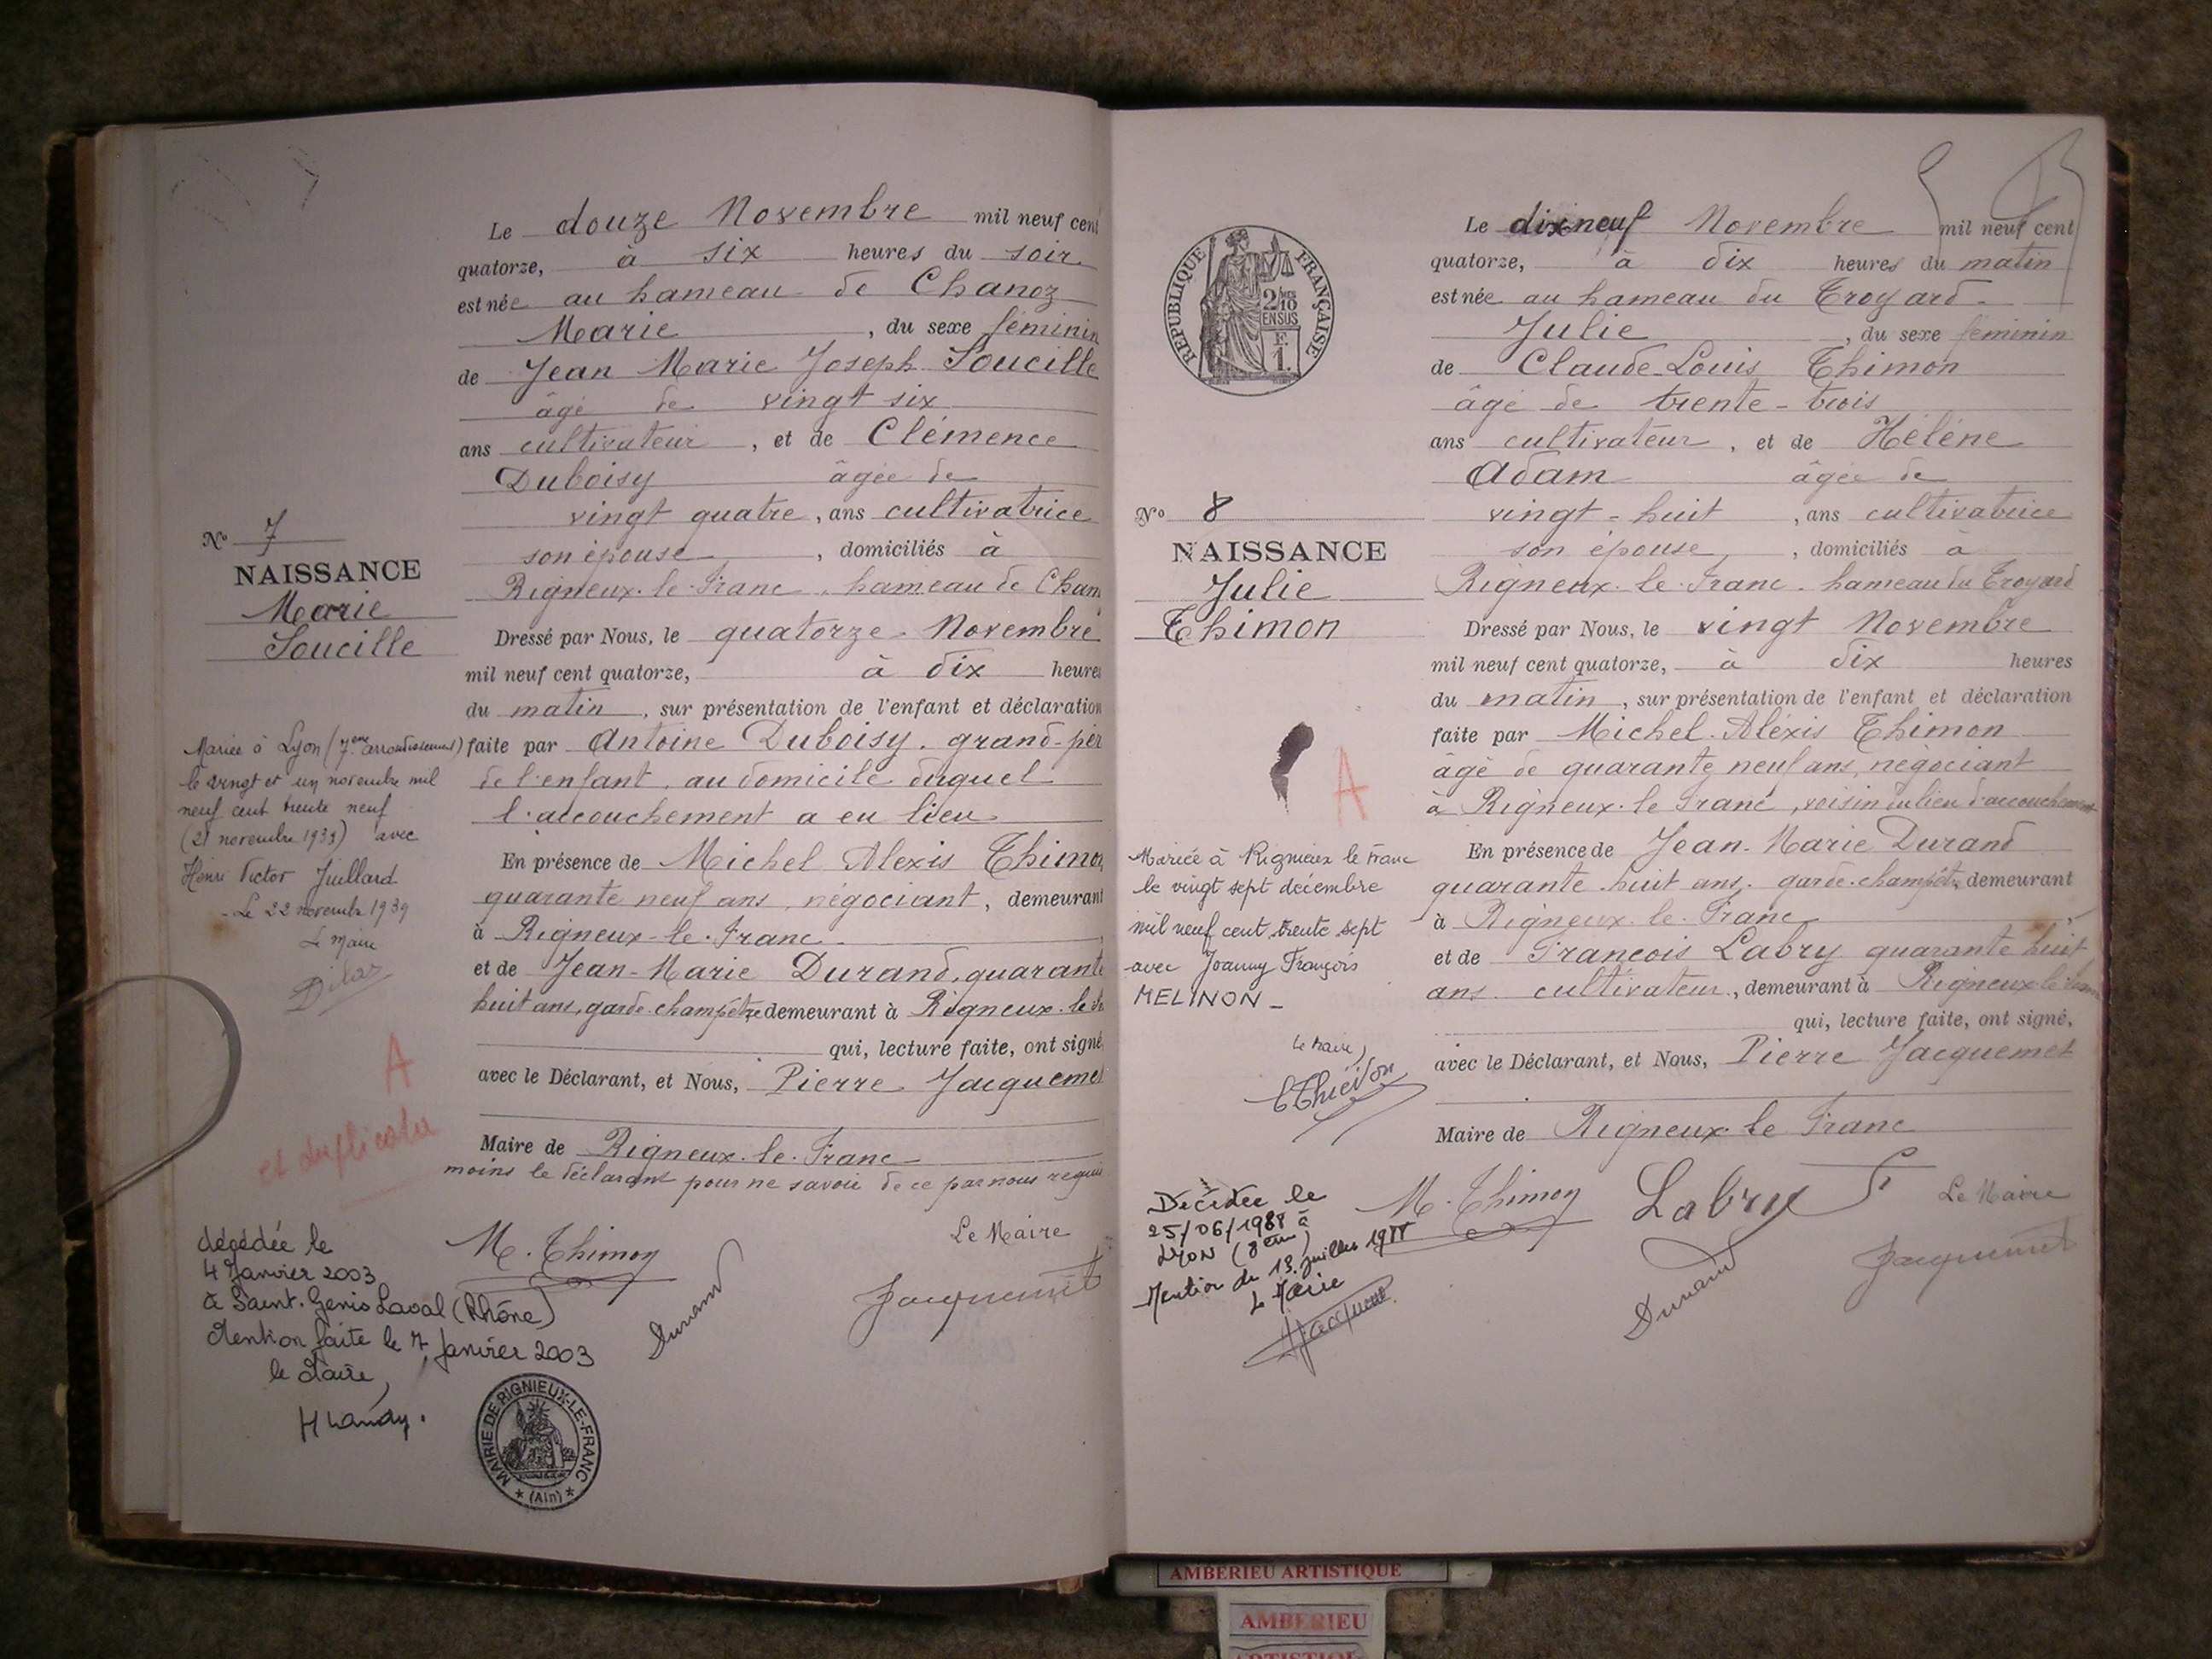 Le douze Novembre mil neuf cent
quatorze, à six heures du soir
est née au hameau de Chanoz
Marie, du sexe féminin
de Jean Marie Joseph Soucille
âgé de vingt six
ans cultivateur, et de Clémence
Duboisy âgée de
vingt quatre, ans cultivatrice
son épouse, domiciliés à
Rigneux-le-Franc, hameau de Chan
Dressé par Nous, le quatorze Novembre
mil neuf cent quatorze, à dix heures
du matin, sur présentation de l'enfant et déclaration
faite par Antoine Duboisy, grand-pèr
de l'enfant, au domicile duquel
l'accouchement a eu lieu
En présence de Michel Alexis Thimon
quarante neuf ans, négociant, demeurant
à Rigneux-le-Franc
et de Jean-Marie Durand, quarante
huit ans, garde-champêtre demeurant à Rigneux-le
qui, lecture faite, ont signé,
avec le Déclarant, et Nous, Pierre Jacquemet
Maire de Rigneux-le-Franc
moins le déclarant pour ne savoir de ce par nous requis
M. Thimon
Durand
Le Maire
Jacquemet
N° 7
NAISSANCE
Marie
Soucille
Mariée à Lyon (7eme arrondissement)
le vingt et un novembre mil
neuf cent trente neuf
(21 novembre 1939) avec
Henri Victor Juillard
- Le 22 novembre 1939
Le Maire
A
et duplicata
décédée le
4 Janvier 2003
à Saint-Genis Laval (Rhône)
Mention faite le 7 Janvier 2003
le Maire,
MAIRIE DE RIGNIEUX-LE-FRANC
* (Ain) *
RÉPUBLIQUE FRANÇAISE
2/10 EN SUS
F. 1.
N° 8
NAISSANCE
Julie
Thimon
A
Mariée à Rignieux le Franc
le vingt sept décembre
mil neuf cent trente sept
avec Joanny François
MELINON -
Le Maire,
Décédée le
25/06/1988 à
LYON (8ème)
Mention du 13 juillet 1988
Le Maire
Le dix-neuf Novembre mil neuf cent
quatorze, à dix heures du matin
est née au hameau du Troyard
Julie, du sexe féminin
de Claude-Louis Thimon
âgé de trente-trois
ans cultivateur, et de Hélène
Adam âgée de
vingt-huit, ans cultivatrice
son épouse, domiciliés à
Rigneux-le-Franc, hameau du Troyard
Dressé par Nous, le vingt Novembre
mil neuf cent quatorze, à dix heures
du matin, sur présentation de l'enfant et déclaration
faite par Michel-Aléxis Thimon
âgé de quarante neuf ans, négociant
à Rigneux-le-Franc, voisin du lieu d'accouchement
En présence de Jean-Marie Durand
quarante-huit ans, garde-champêtre demeurant
à Rigneux-le-Franc
et de Francois Labry quarante huit
ans cultivateur, demeurant à Rigneux-le-Franc
qui, lecture faite, ont signé,
avec le Déclarant, et Nous, Pierre Jacquemet
Maire de Rigneux-le Franc
M. Thimon
Labry F
Le Maire
Durand
Jacquemet
AMBERIEU ARTISTIQUE
AMBERIEU
ARTISTIQUE